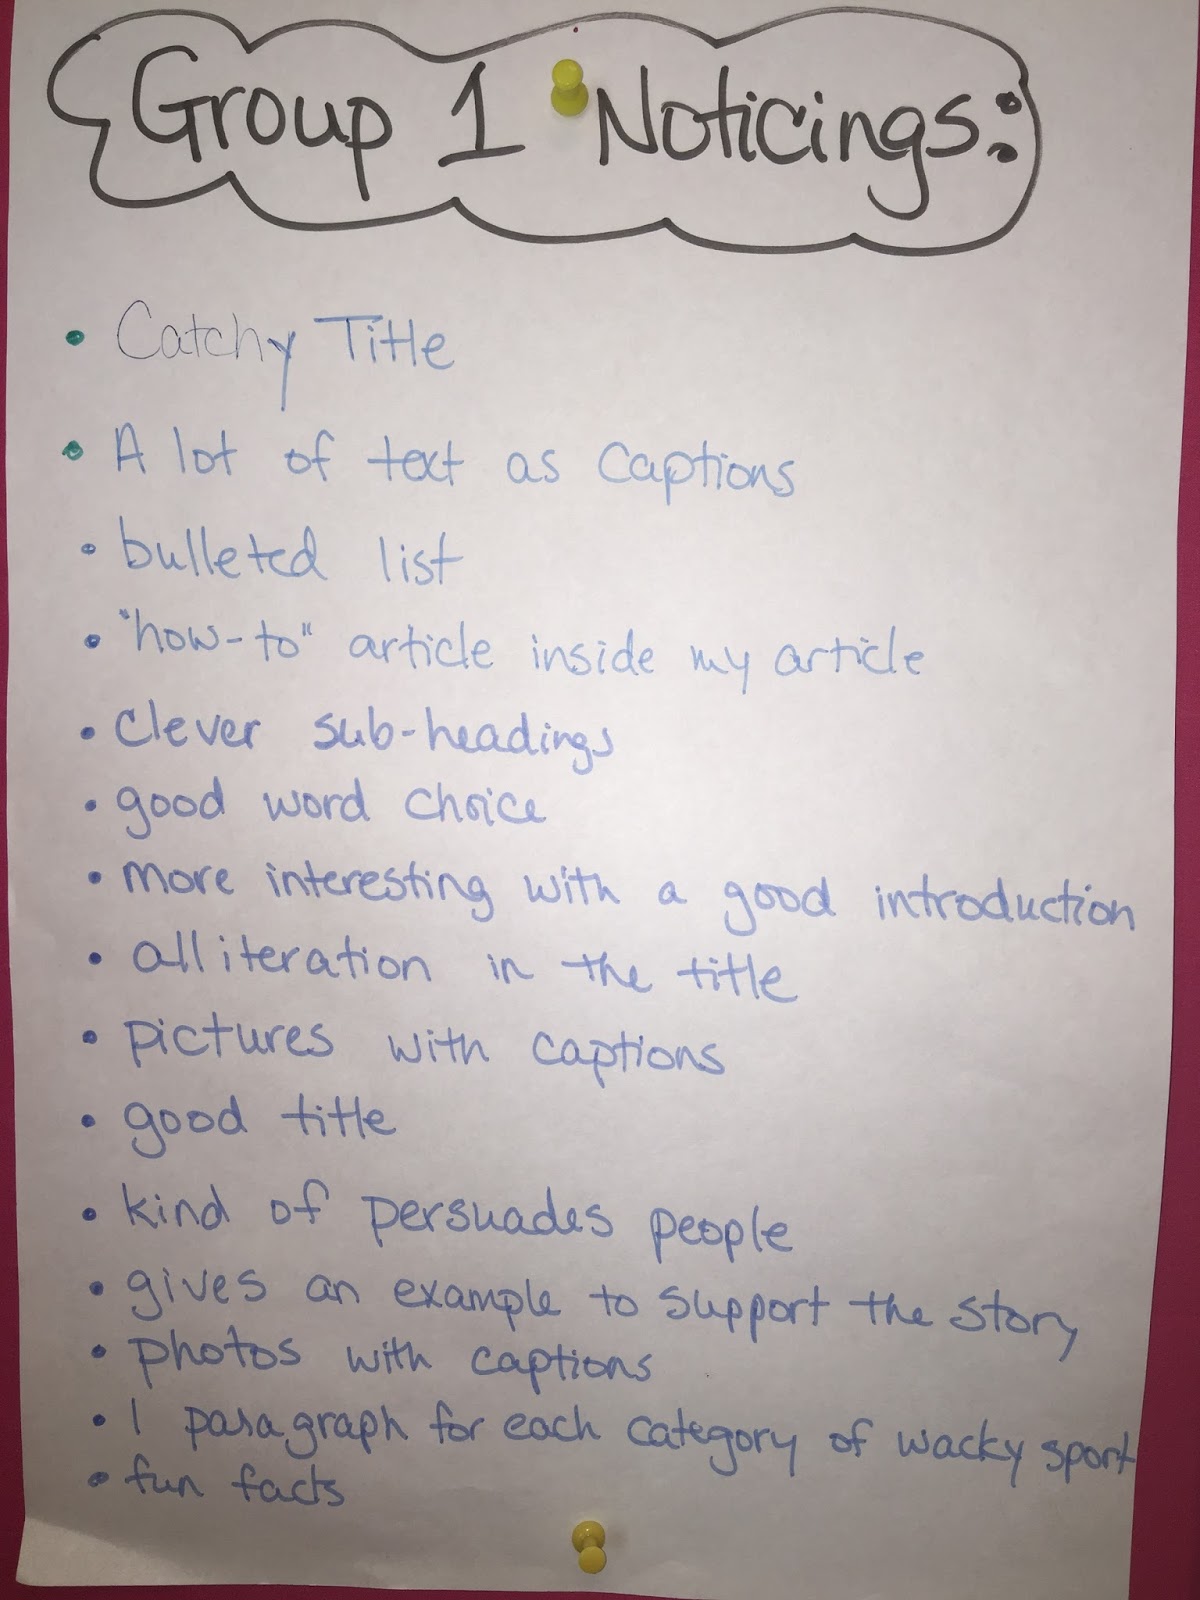 Group 1 Noticings:
• Catchy Title
• A lot of text as Captions
• bulleted list
• "how-to" article inside my article
• Clever sub-headings
• good word choice
• more interesting with a good introduction
• alliteration in the title
• pictures with captions
• good title
• kind of persuades people
• gives an example to support the story
• photos with captions
• 1 paragraph for each category of wacky sport
• fun facts